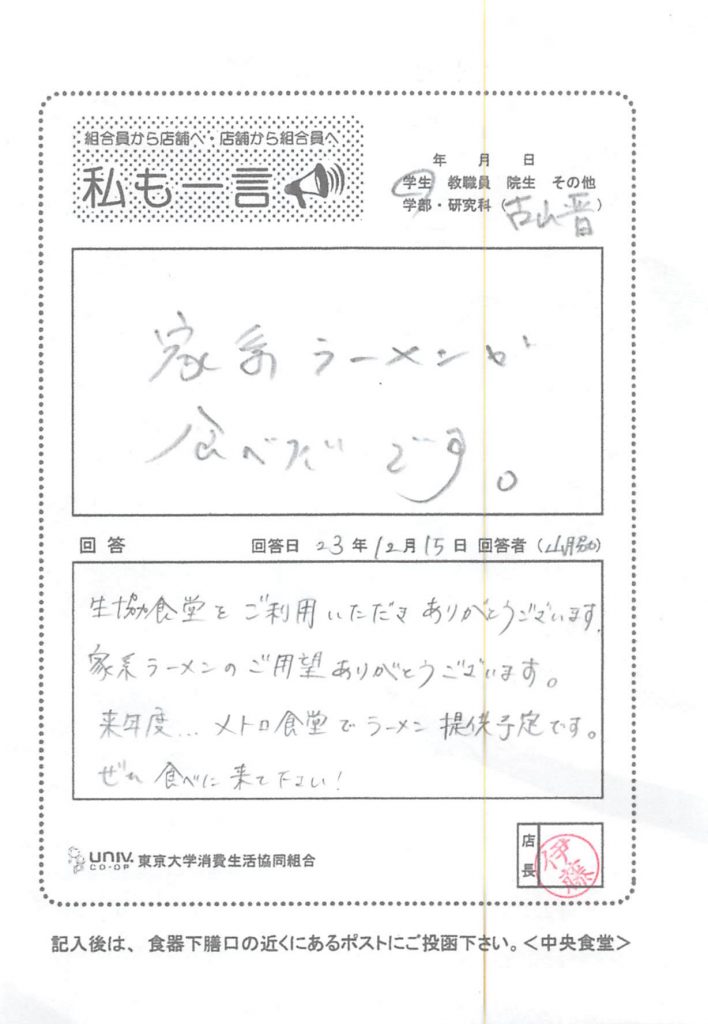 組合員から店舗へ・店舗から組合員へ
私も一言
年 月 日
学生 教職員 院生 その他
学部・研究科(古山晋)
家系ラーメンが
食べたいです。
回答 回答日 23年12月15日 回答者()
生協食堂をご利用いただきありがとうございます。
家系ラーメンのご用望ありがとうございます。
来年度...メトロ食堂でラーメン提供予定です。
ぜひ食べに来て下さい!
UNIV. CO-OP 東京大学消費生活協同組合
店長 伊藤
記入後は、食器下膳口の近くにあるポストにご投函下さい。<中央食堂>